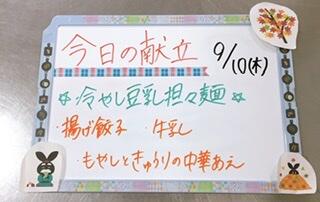 今日の献立 9/10(木)
☆冷やし豆乳担々麺☆
・揚げ餃子 ・牛乳
・もやしときゅうりの中華あえ